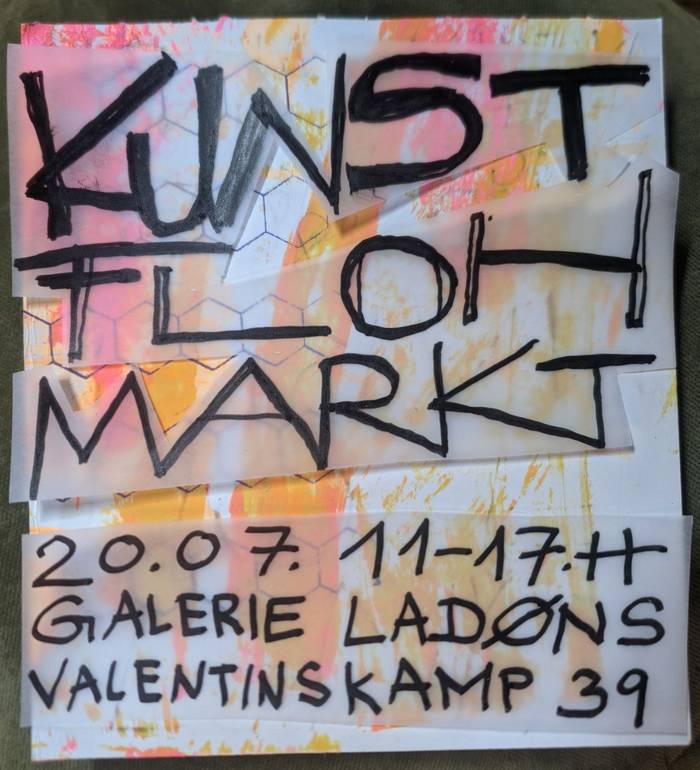 KUNST
FLOH
MARKT
20.07. 11-17.H
GALERIE LADØNS
VALENTINSKAMP 39